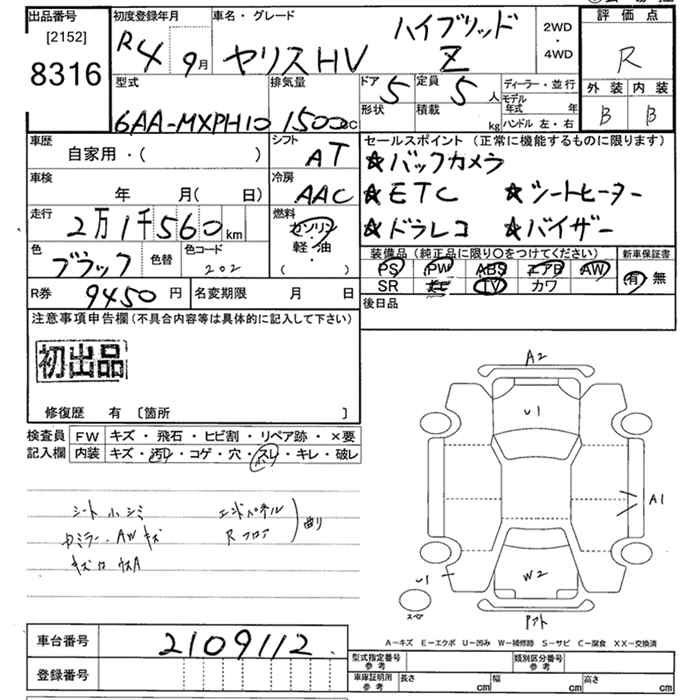 出品番号
[2152]
8316
初度登録年月
R4 9月
車名・グレード
ヤリスHV
ハイブリッド
Z
2WD
・
4WD
評価点
R
外装 内装
B B
型式
6AA-MXPH10
排気量
1500cc
ドア 5
形状
定員 5人
積載 kg
ディーラー・並行
モデル年式 年
ハンドル 左・右
車歴
自家用・( )
シフト
AT
車検
年 月( 日)
冷房
AAC
走行
2万1千560km
燃料
ガソリン
軽・油
( ・ )
色
ブラック
色替
色コード
202
R券 9450円
名変期限 月 日
セールスポイント (正常に機能するものに限ります)
☆バックカメラ
☆ETC ☆シートヒーター
☆ドラレコ ☆バイザー
装備品(純正品に限り○をつけてください)
PS PW ABS エアB AW
SR TV カワ
新車保証書
有・無
後日品
注意事項申告欄(不具合内容等は具体的に記入して下さい)
初出品
修復歴 有 [箇所 ]
検査員
記入欄
FW キズ・飛石・ヒビ割・リペア跡・×要
内装 キズ・汚レ・コゲ・穴・スレ・キレ・破レ
シート小シミ エンドパネル
ミラー.AWキズ Rフロア 曲り
A2
U1
A1
U1
W2
スペア
A−キズ E−エクボ U−凹み W−補修跡 S−サビ C−腐食 XX−交換済
車台番号 2109112
登録番号
型式指定番号
参考
類別区分番号
参考
車庫証明用
参考
長さ cm 幅 cm 高さ cm